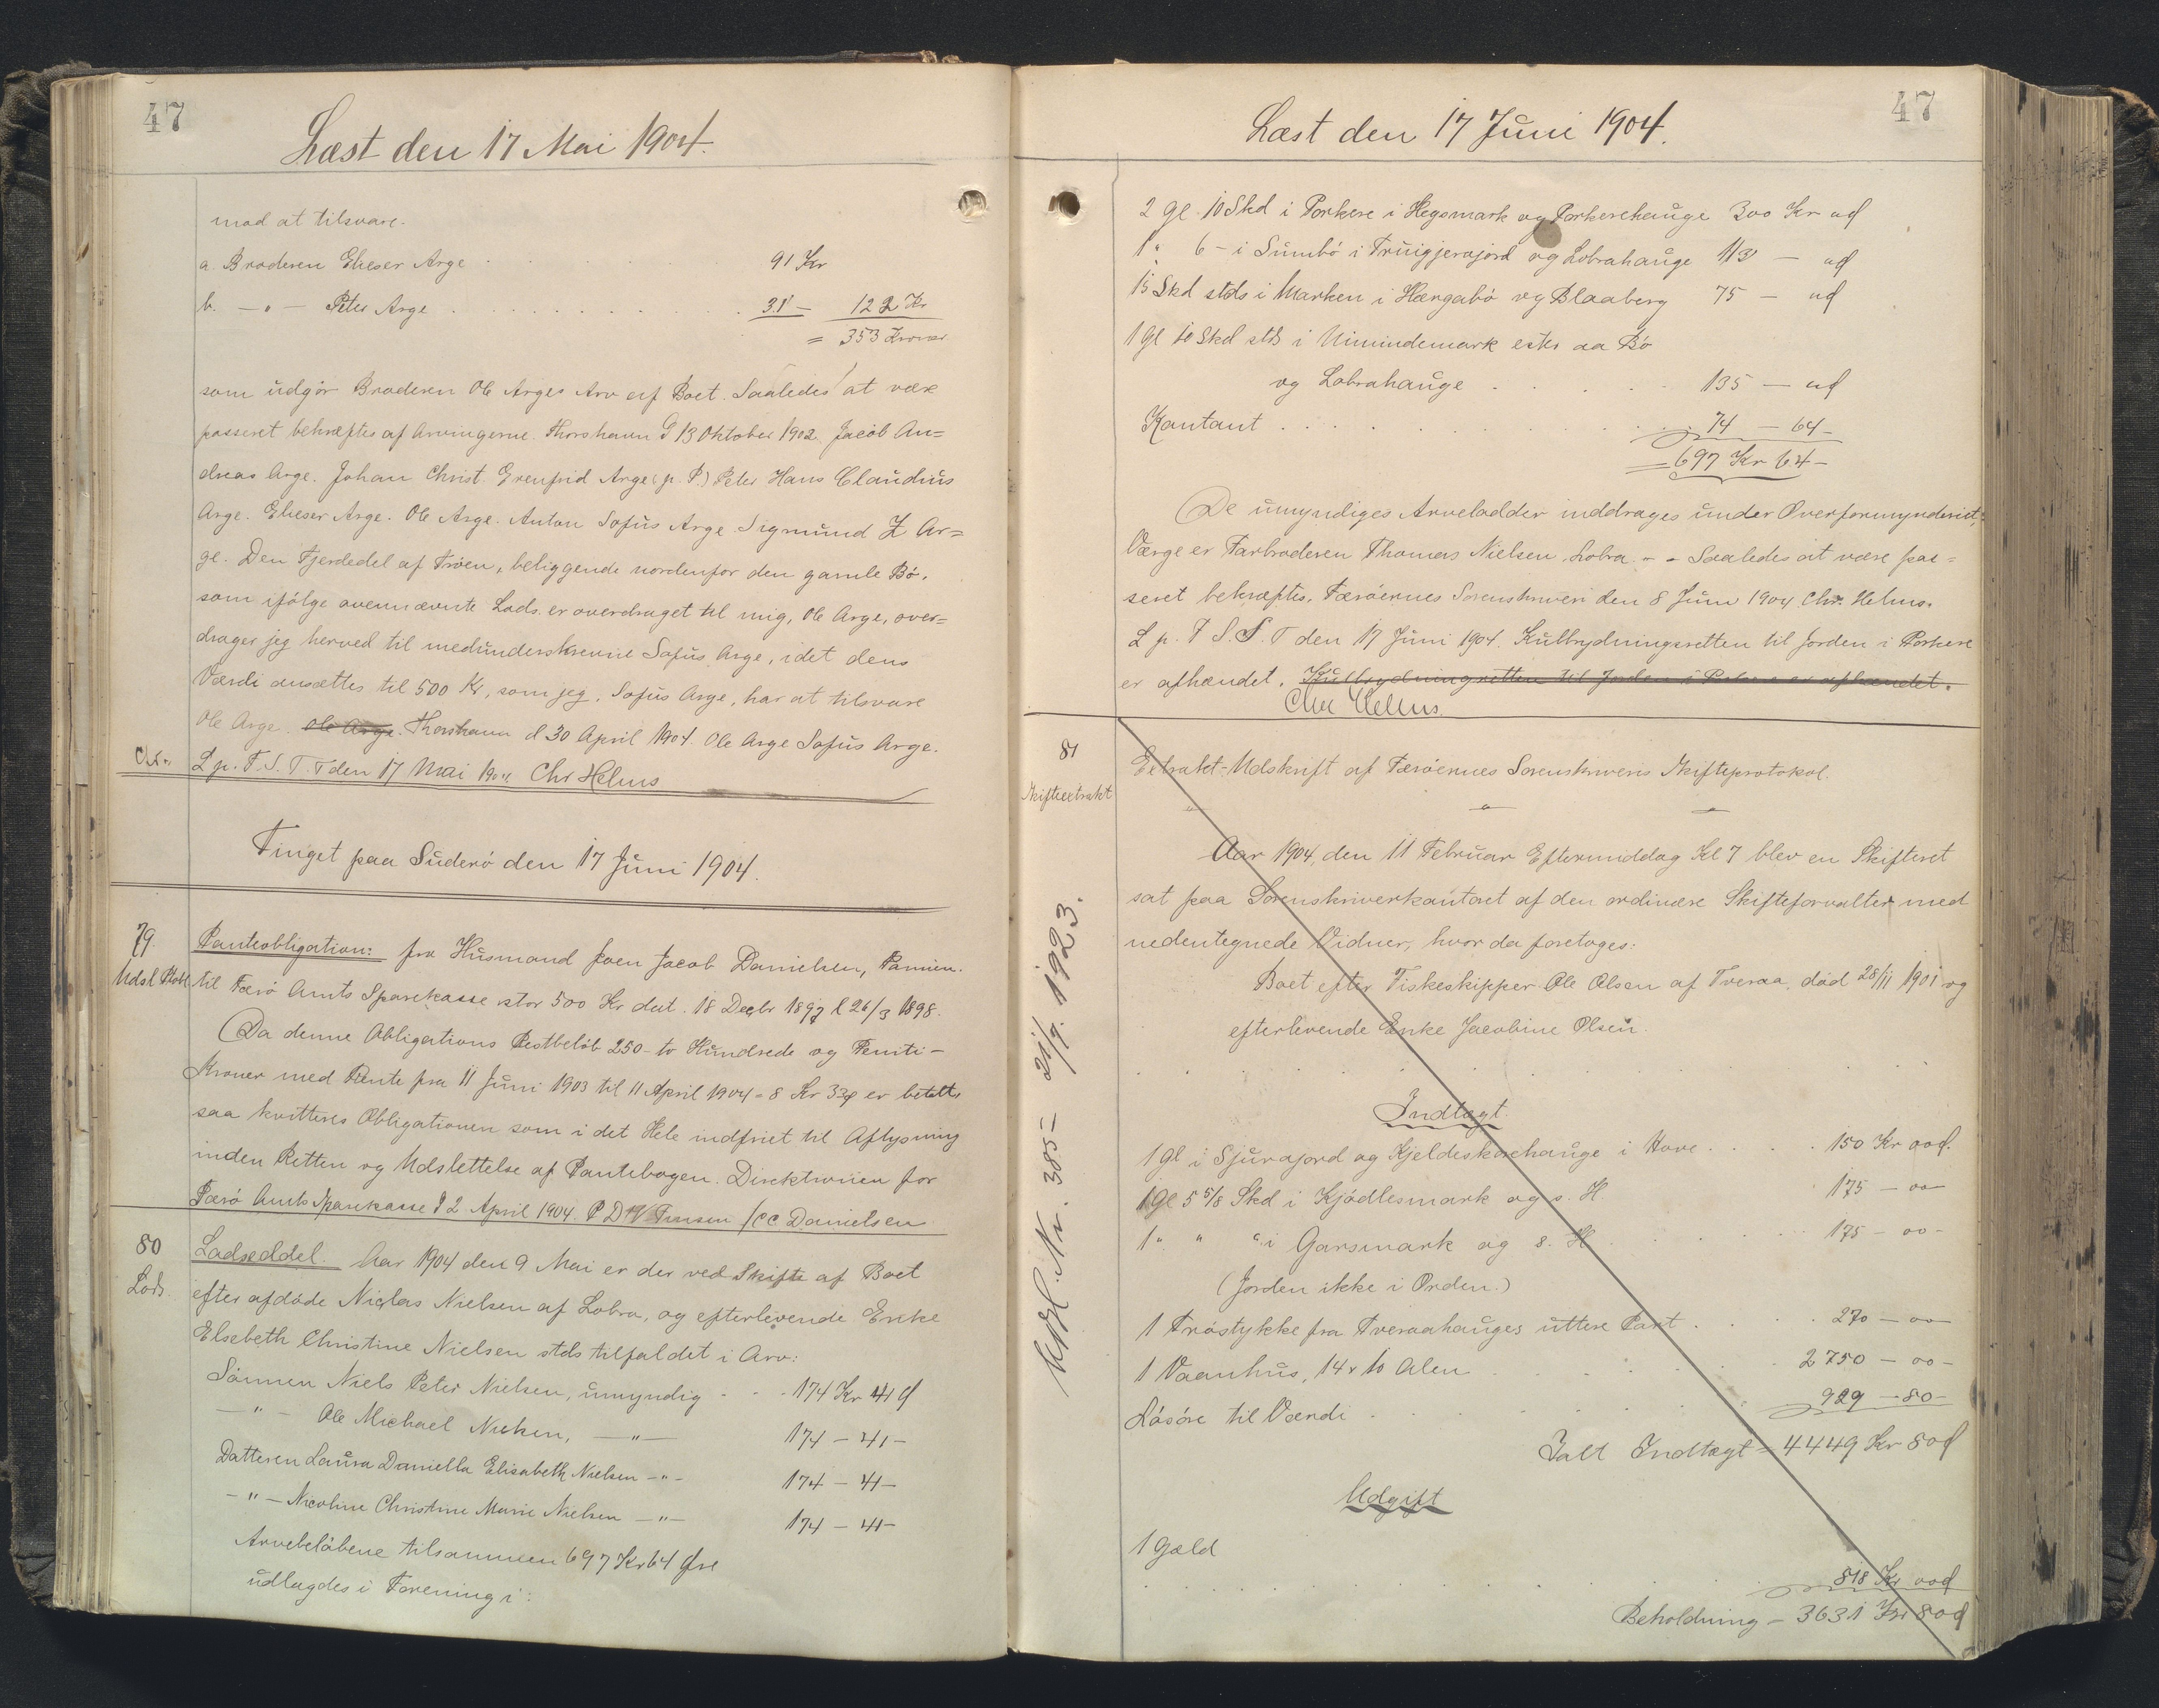 47
Læst den 17 Mai 1904.
mod at tilsvare.
a. Broderen Elieser Arge . . . 91 Kr
b. — " — Peter Arge . . . 31 — 122 Kr
= 353 Kroner
som udgör Broderen Ole Arges Arv af Boet. Saaledes at være
passeret bekræftes af Arvingerne. Thorshavn d 13 Oktober 1902. Jacob An=
dreas Arge. Johan Christ. Grenfrid Arge (p. P.) Peter Hans Claudius
Arge. Elieser Arge. Ole Arge. Anton Sofus Arge Sigmund Z Ar=
ge. Den Fjerdedel af Tröen, beliggende nordenfor den gamle Bö,
som ifölge ovennævnte Lods. er overdraget til mig, Ole Arge, over=
drager jeg herved til medunderskrevne Sofus Arge, idet dens
Værdi ansættes til 500 Kr, som jeg, Sofus Arge, har at tilsvare
Ole Arge. Ole Arge. Thorshavn d 30 April 1904. Ole Arge Sofus Arge.
L p. F. S. T. T den 17 Mai 1904 Chr Helms
Tinget paa Suderö den 17 Juni 1904.
79.
Udsl
Panteobligation: fra Husmand Joen Jacob Danielsen, Famien.
til Færö Amts Sparekasse stor 500 Kr dat. 18 Decbr 1897 l 26/3 1898.
Da denne Obligations Restbelöb 250 - to Hundrede og Femti -
Kroner med Rente fra 11 Juni 1903 til 11 April 1904 = 8 Kr 33 er betalt,
saa kvitteres Obligationen som i det Hele indfriet til Aflysning
inden Retten og Udslettelse af Pantebogen. Direktionen for
Færö Amts Sparekasse d 2 April 1904. / CC Danielsen
80
Lods.
Lodseddel. Aar 1904 den 9 Mai er der ved Skifte af Boet
efter afdöde Niclas Nielsen af Lobra, og efterlevende Enke
Elsebeth Christine Nielsen stds tilfaldet i Arv:
Sönnen Niels Peter Nielsen, umyndig . . . 174 Kr 41
— " — Ole Michael Nielsen, — " — 174 — 41 —
Datteren Laura Daniella Elisabeth Nielsen — " — 174 — 41 —
— " — Nicoline Christine Marie Nielsen — " — 174 — 41 —
Arvebelöbene tilsammen 697 Kr 64 Øre
udlagdes i Forening i:
47
Læst den 17 Juni 1904.
2 Gl. 10 Skd i Porkere i Hegsmark og Porkerehauge 300 Kr
1 " 6 — i Sumbö i og Lobrahauge 113 —
15 Skd stds i Marken i Hærgabö og Blaaberg 75 —
1 Gl 10 Skd stds i Uimindemark
og Lobrahauge . . . 135 —
Kontant . . . 74 — 64 —
= 697 Kr 64 —
De umyndiges Arvelodder inddrages under Overformynderiet.
Værge er Farbroderen Thomas Nielsen, Lobra. — Saaledes at være pas=
seret bekræftes. Færöernes Sorenskriveri den 8 Juni 1904 Chr. Helms.
L p. F S. S. T den 17 Juni 1904. Kulbrydningsretten til Jorden i Porkere
er afhændet. Kulbrydningsretten til Jorden i Porkere er afhændet.
Chr Helms.
81
Skifteextrakt
Extrakt-Udskrift af Færöernes Sorenskriveris Skifteprotokol.
Aar 1904, den 11 Februar Eftermiddag Kl 7 blev en Skifteret
sat paa Sorenskriverkontoret af den ordinære Skifteforvalter med
nedentegnede Vidner, hvor da foretoges:
Boet efter Fiskeskipper Ole Olsen af Tveraa, död 28/11 1901 og
efterlevende Enke Jacobine Olsen.
Indtægt.
1 Gl i Sjurajord og Kjeldeskorehauge i Hove . . . 150 Kr 00
1 Gl 5 5/8 Skd i Kjödlesmark og s. H. 175 — 00
1 " " " i Garsmark og s. H . . . 175 — 00 —
(Jorden ikke i Orden.)
1 Tröstykke fra Tveraahauges uttere Part . . . 270 — 00
1 Vaanhus, 14 x 10 Alen . . . 2750 — 00 —
Lösöre til Værdi . . . 929 — 80 —
Ialt Indtægt = 4449 Kr 80
Udgift
1 Gæld
818 Kr 00
Beholdning = 3631 Kr 80
Nr. 385 = 21/7. 1923.